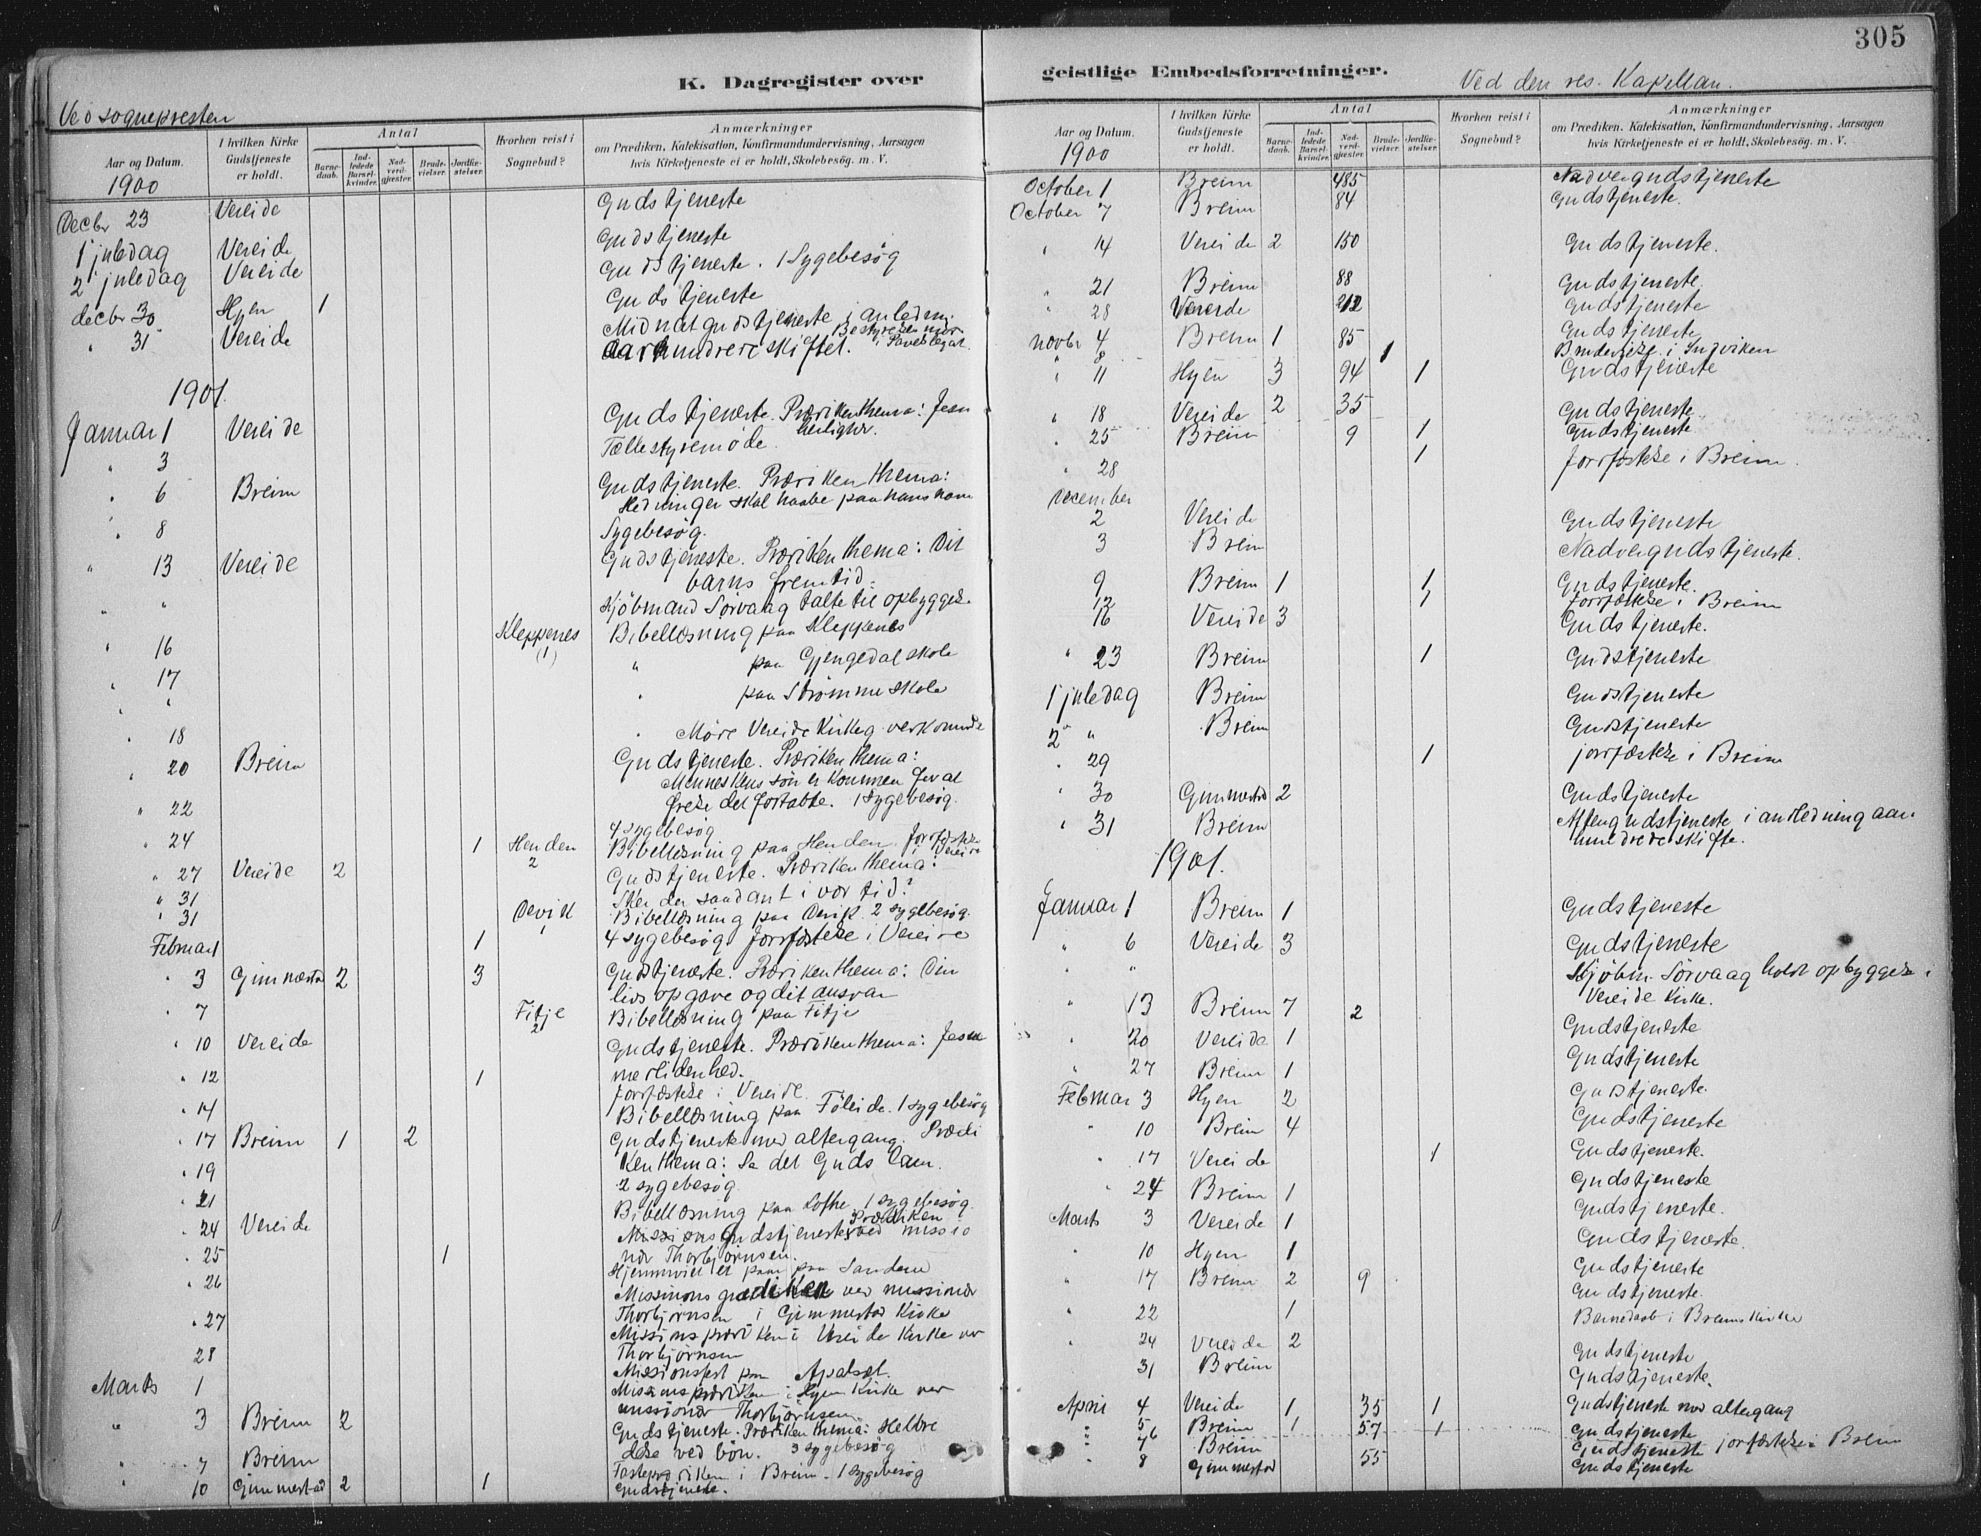 305
K. Dagregister over
geistlige Embedsforretninger.
Ved sognepresten
Ved den res. Kapellan.
Aar og Datum.
I hvilken Kirke Gudstjeneste er holdt.
Antal
Barnedaab.
Indledede Barselkvinder.
Nadverdgjester.
Brudevielser.
Jordfæstelser.
Hvorhen reist i Sognebud?
Anmærkninger
om Prædiken, Katekisation, Konfirmandundervisning, Aarsagen
hvis Kirketjeneste ei er holdt, Skolebesøg. m. V.
1900
Decbr 23 Vereide Gudstjeneste
1 juledag Vereide Gudstjeneste
2 juledag Vereide Gudstjeneste. 1 Sygebesøg
decbr 30 Hyen 1 Gudstjeneste
" 31 Vereide Midnatgudstjeneste i anledn.
aarhundredeskiftet.
1901.
Januar 1 Vereide Gudstjeneste. Prædikenthema: Jesu
" 3
" 6 Breim Gudstjeneste. Prædikenthema:
Hedninger skal haabe paa hans navn
" 8 Sygebesøg.
" 13 Vereide Gudstjeneste. Prædikenthema: Dit
barns fremtid.
" " Kjøbmand Sørvaag talte til opbyggelse
" 16 Kleppenes (1) Bibellæsning paa Kleppenes
" 17 " paa Gjengedal skole
" " " paa Strømme skole
" 18 " Møre Vereide Kirkeg.
" 20 Breim Gudstjeneste. Prædikenthema:
Menneskens søn er kommen for at
frelse det fortabte. 1 sygebesøg.
" 22 4 sygebesøg
" 24 1 Henden 2 Bibellæsning paa Henden.
" 27 Vereide 2 Gudstjeneste. Prædikenthema:
" 31 Sker der saadant i vor tid?
" 31 Devik 1 Bibellæsning paa Devik. 2 sygebesøg.
Februar 1 1 4 sygebesøg Jordfæstelse i Vereide
" 3 Gimmestad 2 3 Gudstjeneste. Prædikenthema: Din
livsopgave og dit ansvar
" 7 Fitje 2 Bibellæsning paa Fitje
" 10 Vereide Gudstjeneste. Prædikenthema: Jesu
medlidenhed.
" 12 1 Jordfæstelse i Vereide.
" 14 Bibellæsning paa Føleide. 1 sygebesøg
" 17 Breim 1 2 Gudstjeneste med altergang. Prædi
kenthema: Se det Guds Lam.
" 19 2 sygebesøg
" 21 Bibellæsning paa Lothe. 1 sygebesøg.
" 24 Vereide Missionsgudstjeneste Prædiken ved missio
nær Thorbjørnsen.
" 25 1 Hjemmeviet et par paa Sandene
" 26 Missionsprædiken ved missionær
Thorbjørnsen i Gimmestad Kirke
" 27 Missionsprædiken i Vereide Kirke ved
Thorbjørnsen
28 Missionsfest paa Apalset.
Marts 1 Missionsprædiken i Hyen Kirke ved
missionær Thorbjørnsen.
" 3 Breim 2 Gudstjeneste. Prædikenthema: Helbre
delse ved bøn. 3 sygebesøg
" 7 Breim Fasteprædiken i Breim. 1 sygebesøg
" 10 Gimmestad 2 1 Gudstjeneste.
Aar og Datum.
I hvilken Kirke Gudstjeneste er holdt.
Antal
Barnedaab.
Indledede Barselkvinder.
Nadverdgjester.
Brudevielser.
Jordfæstelser.
Hvorhen reist i Sognebud?
Anmærkninger
om Prædiken, Katekisation, Konfirmandundervisning, Aarsagen
hvis Kirketjeneste ei er holdt, Skolebesøg. m. V.
1900
October 1 Breim 485 Nadvergudstjeneste
October 7 Breim 84 Gudstjeneste.
" 14 Vereide 2 150 Gudstjeneste.
" 21 Breim 88 Gudstjeneste.
" 28 Vereide 212 Gudstjeneste
novbr 4 Breim 1 85 Gudstjeneste
" 8 1 Brudevielse i Indviken
" 11 Hyen 3 94 1 Gudstjeneste
" 18 Vereide 2 35 Gudstjeneste
" 25 Breim 9 1 Gudstjeneste
" 28 1 Jordfæstelse i Breim.
December
2 Vereide Gudstjeneste
3 Breim Nadvergudstjeneste.
9 Breim 1 1 Gudstjeneste.
12 1 Jordfæstelse i Breim
16 Vereide 3 Gudstjeneste.
" 23 Breim 1 Gudstjeneste
1 juledag Breim Gudstjeneste
2 " Breim Gudstjeneste
" 29 1 jordfæstelse i Breim
" 30 Gimmestad 2 Gudstjeneste
" 31 Breim Aftengudstjeneste i anledning aar-
hundredeskifte.
1901.
Januar 1 Breim 1 Gudstjeneste
" 6 Vereide 3 Gudstjeneste
" " Kjøbm. Sørvaag holdt opbyggelse i
Vereide Kirke.
" 13 Breim 7 2 Gudstjeneste
" 20 Vereide 1 Gudstjeneste
" 27 Breim 1 Gudstjeneste.
Februar 3 Hyen 2 Gudstjeneste
" 10 Breim 4 Gudstjeneste.
" 17 Vereide 1 Gudstjeneste
" 24 Breim 1 Gudstjeneste.
Marts 3 Vereide 1 Gudstjeneste.
" 10 Hyen 1 Gudstjeneste
" 17 Breim 2 9 Gudstjeneste.
" 22 1 Barnedaab i Breims Kirke
" 24 Vereide 2 Gudstjeneste
31 Breim Gudstjeneste.
April 4 Vereide 1 35 1 Gudstjeneste med altergang
" 5 Breim 1 57 1 Gudstjeneste
" Breim Gudstjeneste jordfæstelse i Breim
" 8 Gimmestad 55 Gudstjeneste